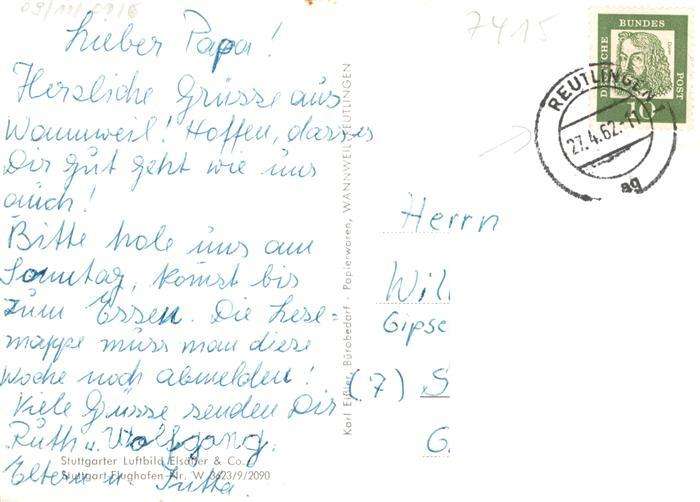 Lieber Papa!
Herzliche Grüsse aus
Wannweil! Hoffen, dass es
Dir gut geht wie uns
auch!
Bitte hole uns am
Sonntag, komst bis
zum Essen. Die Lese=
mappe muss man diese
Woche noch abmelden!
Viele Grüsse senden Dir
Ruth u. Wolfgang.
Eltern u. Jutta.
Stuttgarter Luftbild Elsäßer & Co.
Stuttgart-Flughafen Nr. W 3623/9/2090
Karl Eißler, Bürobedarf · Papierwaren, WANNWEIL/REUTLINGEN
7415
DEUTSCHE BUNDES POST
10
REUTLINGEN
27.4.62.-17
ag
Herrn
Will
Gipse
(7) S
G